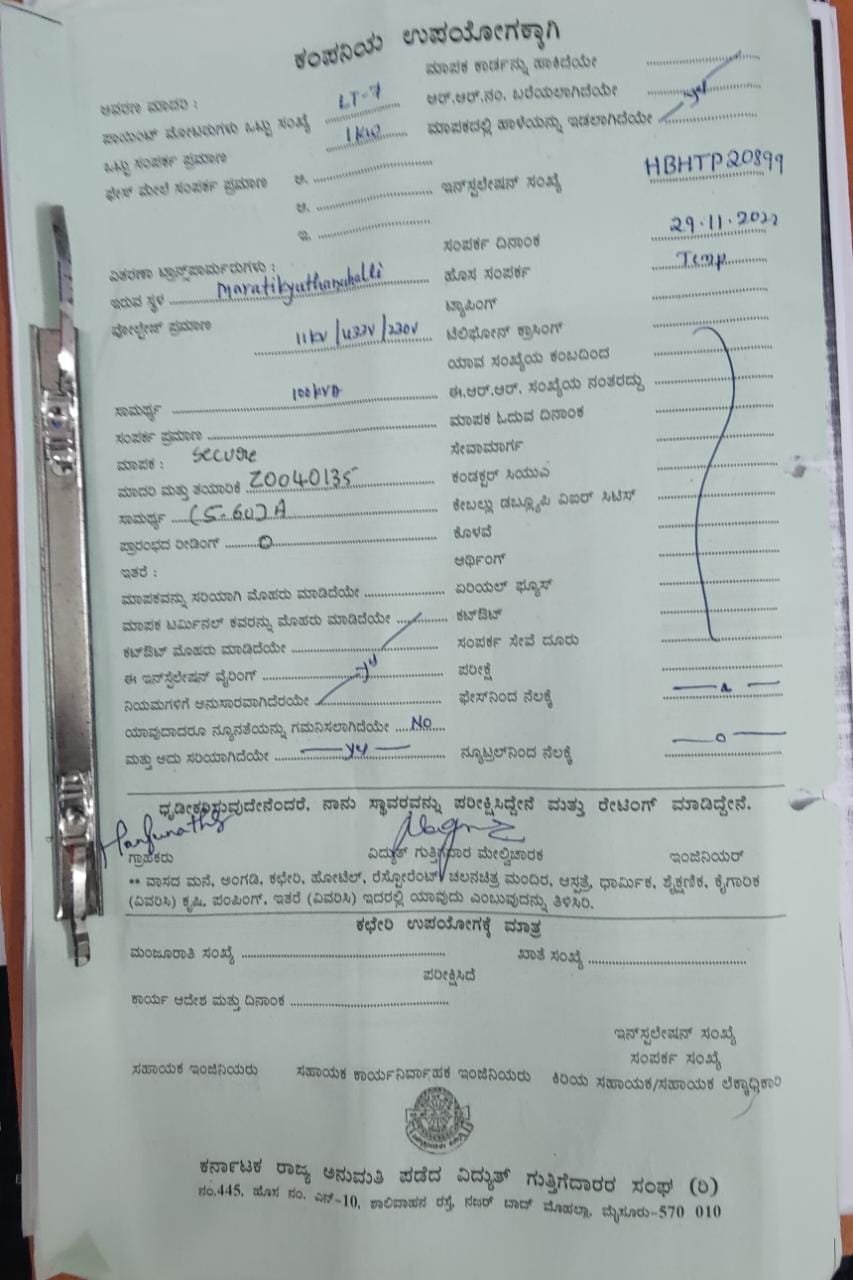 ಕಂಪನಿಯ ಉಪಯೋಗಕ್ಕಾಗಿ
ಆವರಣ ಮಾದರಿ : LT-7
ಪಾಯಿಂಟ್ ಮೋಟರುಗಳು ಒಟ್ಟು ಸಂಖ್ಯೆ 1KW
ಒಟ್ಟು ಸಂಪರ್ಕ ಪ್ರಮಾಣ
ಫೇಸ್ ಮೇಲೆ ಸಂಪರ್ಕ ಪ್ರಮಾಣ ಅ. ..........
ಆ. ..........
ಇ. ..........
ವಿತರಣಾ ಟ್ರಾನ್ಸ್‌ಫಾರ್ಮರುಗಳು :
ಇರುವ ಸ್ಥಳ Maratikyathanahalli
ವೋಲ್ಟೇಜ್ ಪ್ರಮಾಣ
11kV/433V/230V
ಸಾಮರ್ಥ್ಯ 100kVA
ಸಂಪರ್ಕ ಪ್ರಮಾಣ ..........
ಮಾಪಕ : Secure
ಮಾದರಿ ಮತ್ತು ತಯಾರಿಕೆ Z0040135
ಸಾಮರ್ಥ್ಯ (5-60)A
ಪ್ರಾರಂಭದ ರೀಡಿಂಗ್ 0
ಇತರೆ :
ಮಾಪಕವನ್ನು ಸರಿಯಾಗಿ ಮೊಹರು ಮಾಡಿದೆಯೇ ..........
ಮಾಪಕ ಟರ್ಮಿನಲ್ ಕವರನ್ನು ಮೊಹರು ಮಾಡಿದೆಯೇ ..........
ಕಟ್‌ಔಟ್ ಮೊಹರು ಮಾಡಿದೆಯೇ ..........
ಈ ಇನ್‌ಸ್ಟಲೇಷನ್ ವೈರಿಂಗ್ .......... yes
ನಿಯಮಗಳಿಗೆ ಅನುಸಾರವಾಗಿದೆರಯೇ ..........
ಯಾವುದಾದರೂ ನ್ಯೂನತೆಯನ್ನು ಗಮನಿಸಲಾಗಿದೆಯೇ .... No
ಮತ್ತು ಅದು ಸರಿಯಾಗಿದೆಯೇ — yes —
ಮಾಪಕ ಕಾರ್ಡನ್ನು ಹಾಕಿದೆಯೇ ..........
ಆರ್.ಆರ್.ನಂ. ಬರೆಯಲಾಗಿದೆಯೇ .......... yes
ಮಾಪಕದಲ್ಲಿ ಹಾಳೆಯನ್ನು ಇಡಲಾಗಿದೆಯೇ ..........
ಇನ್‌ಸ್ಟಲೇಷನ್ ಸಂಖ್ಯೆ HBHTP20899
ಸಂಪರ್ಕ ದಿನಾಂಕ 29.11.2022
ಹೊಸ ಸಂಪರ್ಕ Temp
ಟ್ಯಾಪಿಂಗ್ ..........
ಟೆಲಿಫೋನ್ ಕ್ರಾಸಿಂಗ್ ..........
ಯಾವ ಸಂಖ್ಯೆಯ ಕಂಬದಿಂದ ..........
ಈ.ಆರ್.ಆರ್. ಸಂಖ್ಯೆಯ ನಂತರದ್ದು ..........
ಮಾಪಕ ಓದುವ ದಿನಾಂಕ ..........
ಸೇವಾಮಾರ್ಗ ..........
ಕಂಡಕ್ಟರ್ ಸಿಯುಎ ..........
ಕೇಬಲ್ಲು ಡಬ್ಲ್ಯೂಪಿ ವಿಐರ್ ಸಿಟಿಸ್ ..........
ಕೊಳವೆ ..........
ಆರ್ಥಿಂಗ್ ..........
ಏರಿಯಲ್ ಫ್ಯೂಸ್ ..........
ಕಟ್‌ಔಟ್ ..........
ಸಂಪರ್ಕ ಸೇವೆ ದೂರು ..........
ಪರೀಕ್ಷೆ ..........
ಫೇಸ್‌ನಿಂದ ನೆಲಕ್ಕೆ
ನ್ಯೂಟ್ರಲ್‌ನಿಂದ ನೆಲಕ್ಕೆ — 0 —
ಧೃಢೀಕರಿಸುವುದೇನೆಂದರೆ, ನಾನು ಸ್ಥಾವರವನ್ನು ಪರೀಕ್ಷಿಸಿದ್ದೇನೆ ಮತ್ತು ರೇಟಿಂಗ್ ಮಾಡಿದ್ದೇನೆ.
Manjunatha
ಗ್ರಾಹಕರು ವಿದ್ಯುತ್ ಗುತ್ತಿಗೆದಾರ ಮೇಲ್ವಿಚಾರಕ ಇಂಜಿನಿಯರ್
** ವಾಸದ ಮನೆ, ಅಂಗಡಿ, ಕಛೇರಿ, ಹೋಟೆಲ್, ರೆಸ್ಟೋರೆಂಟ್ ಚಲನಚಿತ್ರ ಮಂದಿರ, ಆಸ್ಪತ್ರೆ, ಧಾರ್ಮಿಕ, ಶೈಕ್ಷಣಿಕ, ಕೈಗಾರಿಕ
(ವಿವರಿಸಿ) ಕೃಷಿ, ಪಂಪಿಂಗ್, ಇತರೆ (ವಿವರಿಸಿ) ಇದರಲ್ಲಿ ಯಾವುದು ಎಂಬುವುದನ್ನು ತಿಳಿಸಿರಿ.
ಕಛೇರಿ ಉಪಯೋಗಕ್ಕೆ ಮಾತ್ರ
ಮಂಜೂರಾತಿ ಸಂಖ್ಯೆ .......... ಖಾತೆ ಸಂಖ್ಯೆ ..........
ಪರೀಕ್ಷಿಸಿದೆ
ಕಾರ್ಯ ಆದೇಶ ಮತ್ತು ದಿನಾಂಕ ..........
ಇನ್‌ಸ್ಟಲೇಷನ್ ಸಂಖ್ಯೆ
ಸಂಪರ್ಕ ಸಂಖ್ಯೆ
ಸಹಾಯಕ ಇಂಜಿನಿಯರು ಸಹಾಯಕ ಕಾರ್ಯನಿರ್ವಾಹಕ ಇಂಜಿನಿಯರು ಕಿರಿಯ ಸಹಾಯಕ/ಸಹಾಯಕ ಲೆಕ್ಕಾಧಿಕಾರಿ
ಕರ್ನಾಟಕ ರಾಜ್ಯ ಅನುಮತಿ ಪಡೆದ ವಿದ್ಯುತ್ ಗುತ್ತಿಗೆದಾರರ ಸಂಘ (ರಿ)
ನಂ.445, ಹೊಸ ನಂ. ಎನ್-10, ಶಾಲಿವಾಹನ ರಸ್ತೆ, ನಜರ್ ಬಾದ್ ಮೊಹಲ್ಲಾ, ಮೈಸೂರು-570 010